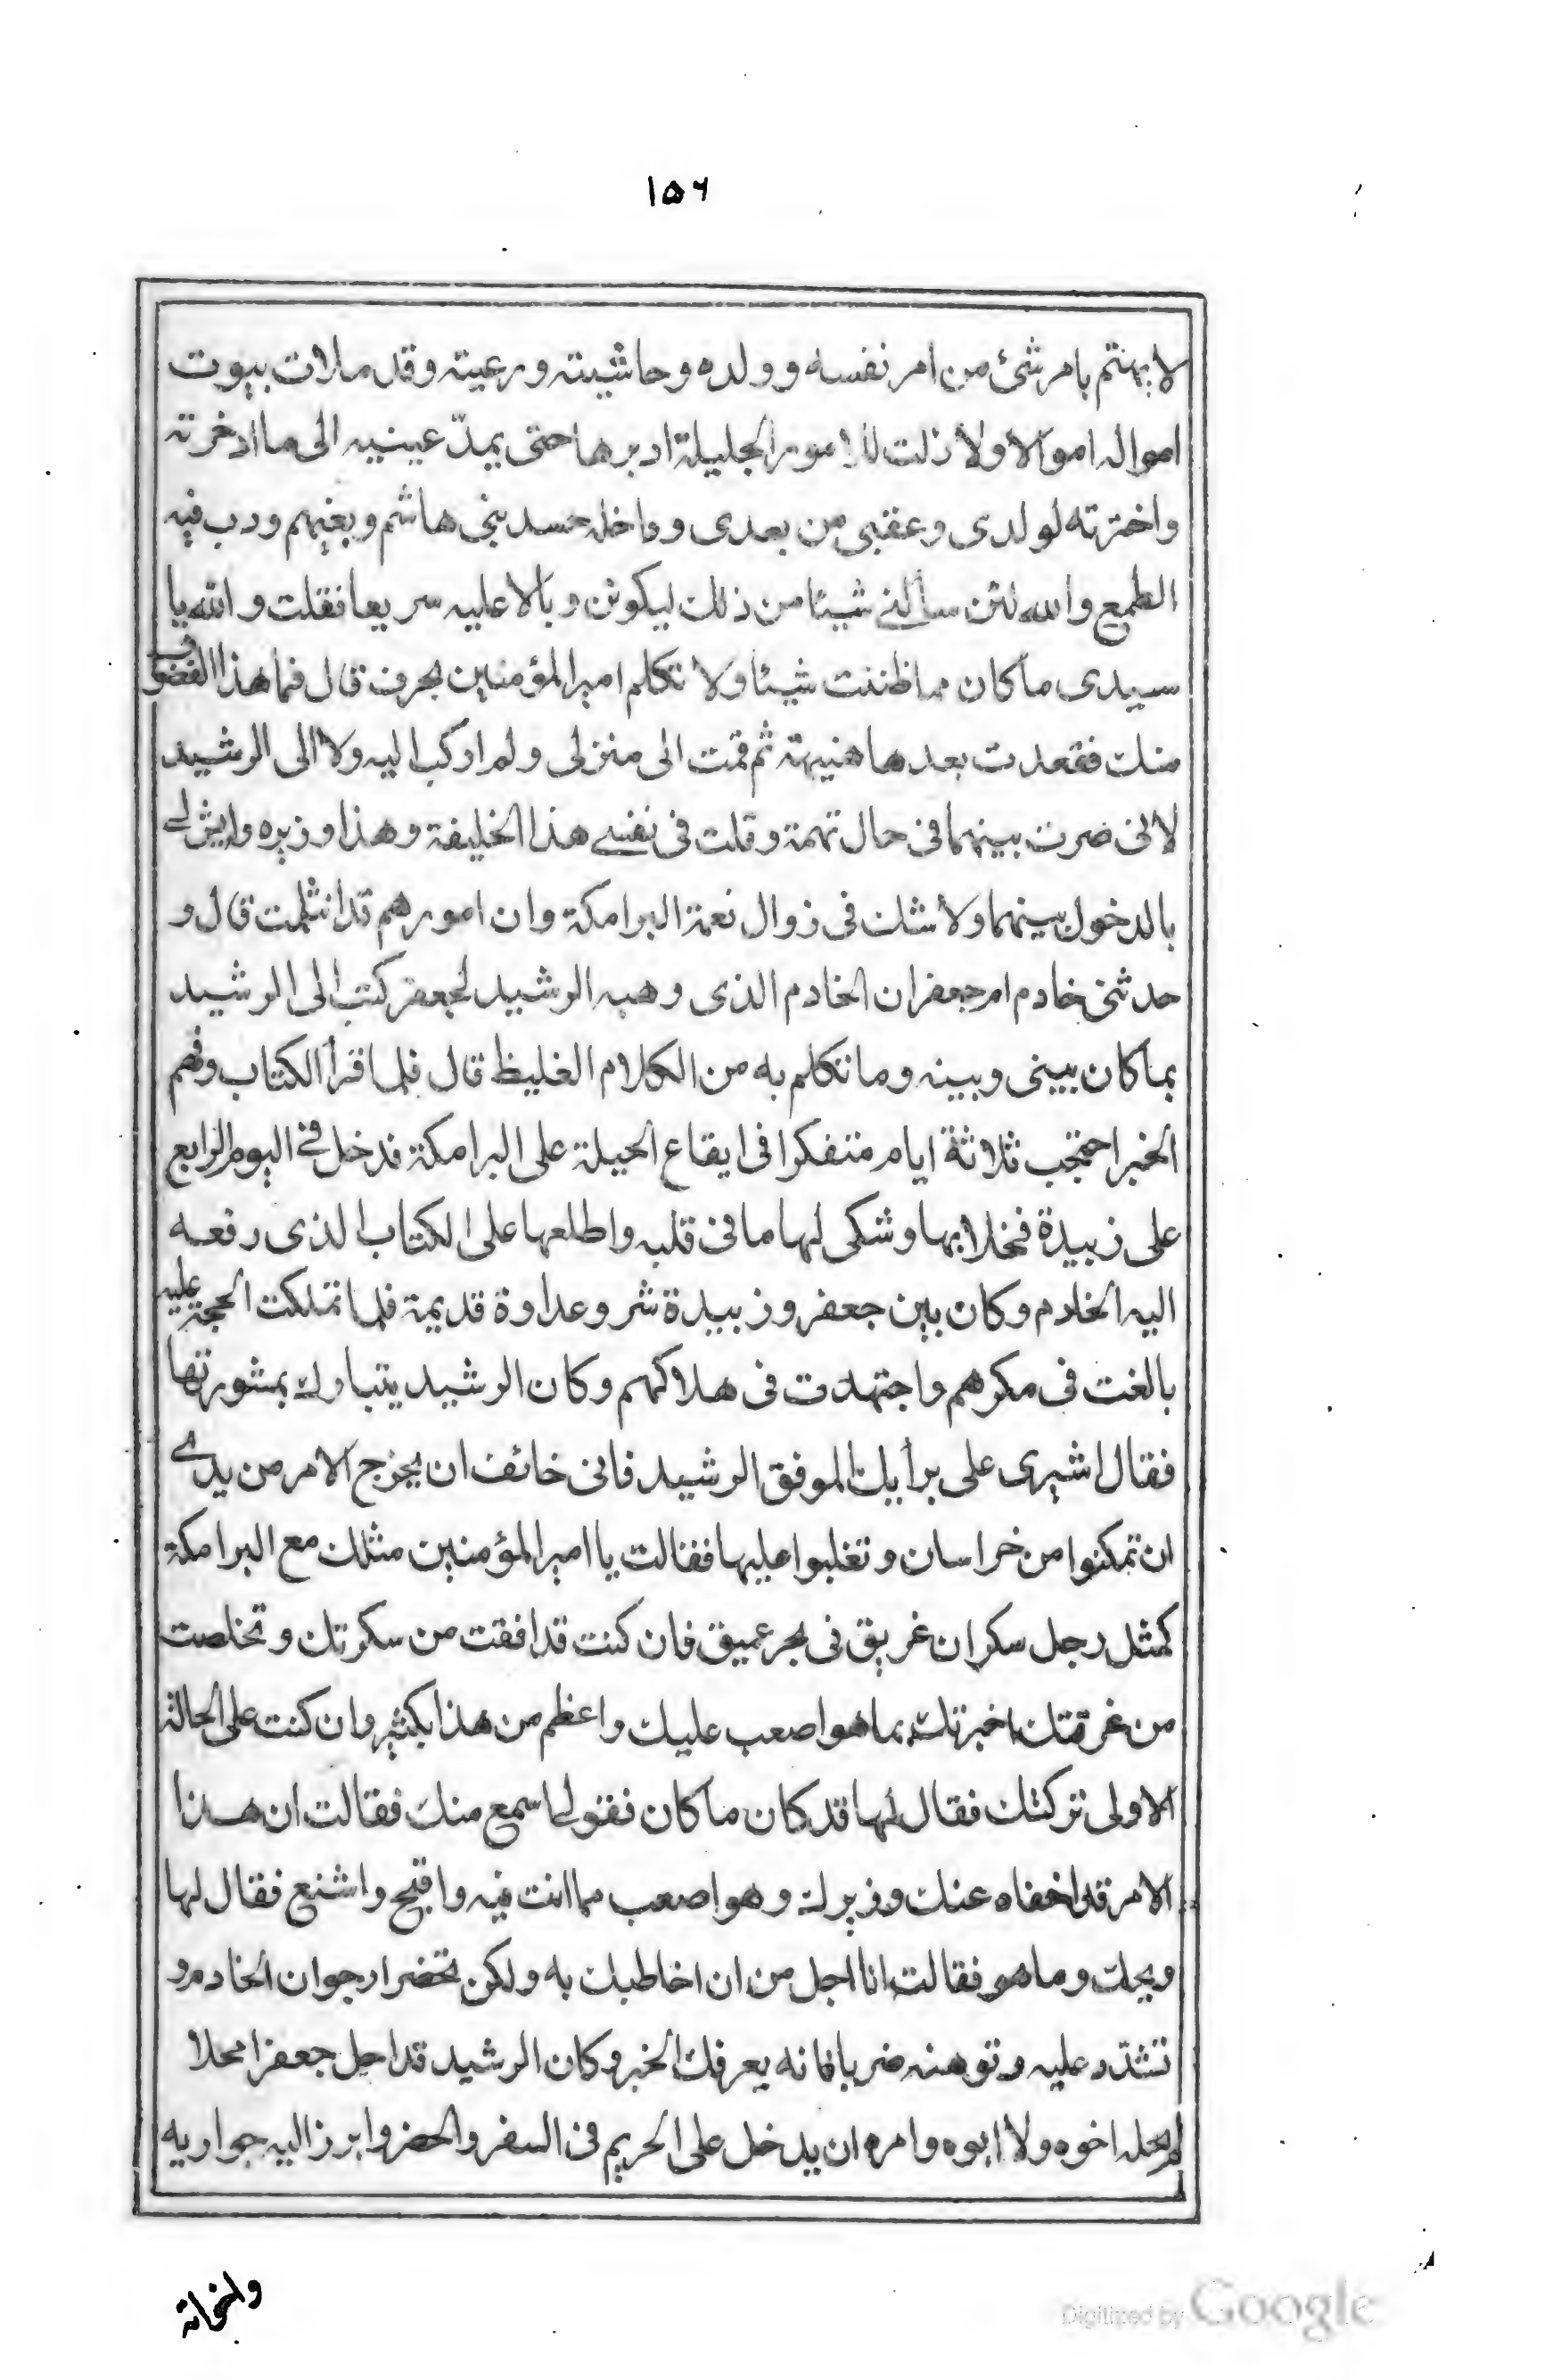 ١٥٦
لا يهتم بامر شئ من امر نفسه وولده وحاشيته ورعيته وقد ملات بيوت
امواله اموالا ولا زلت للامور الجليلة ادبرها حتى يمدّ عينيه الى ما ادخرته
واخترته لولدى وعقبى من بعدى وداخله حسد بنى هاشم وبغيهم ودب فيه
الطمع والله لئن سألنى شيئا من ذلك ليكونن وبالا عليه سريعا فقلت والله يا
سيدى ما كان مما ظننت شيئا ولا تكلم امير المؤمنين بحرف قال فما هذا الفضول
منك فقعدت بعدها هنيهة ثم قمت الى منزلى ولم اركب اليه ولا الى الرشيد
لانى صرت بينهما فى حال تهمة وقلت فى نفسى هذا الخليفة وهذا وزيره وايش لى
بالدخول بينهما ولا شك فى زوال نعمة البرامكة وان امورهم قد انثلمت قال و
حدثنى خادم ام جعفر ان الخادم الذى وهبه الرشيد لجعفر كتب الى الرشيد
بما كان بينى وبينه وما تكلم به من الكلام الغليظ قال فلما قرأ الكتاب وفهم
الخبر احتجب ثلاثة ايام متفكرا فى ايقاع الحيلة على البرامكة فدخل فى اليوم الرابع
على زبيدة فخلا بها وشكى لها ما فى قلبه واطلعها على الكتاب الذى رفعه
اليه الخادم وكان بين جعفر وزبيدة شر وعداوة قديمة فلما تملكت الحجة عليه
بالغت فى مكرهم واجتهدت فى هلاكهم وكان الرشيد يتبارك بمشورتها
فقال اشيرى على برأيك الموفق الرشيد فانى خائف ان يخرج الامر من يدى
ان تمكنوا من خراسان وتغلبوا عليها فقالت يا امير المؤمنين مثلك مع البرامكة
كمثل رجل سكران غريق فى بحر عميق فان كنت قد افقت من سكرتك وتخلصت
من غرقتك اخبرتك بما هو اصعب عليك واعظم من هذا بكثير وان كنت على الحالة
الاولى تركتك فقال لها قد كان ما كان فقولى اسمع منك فقالت ان هذا
الامر قد اخفاه عنك وزيرك وهو اصعب مما انت فيه واقبح واشنع فقال لها
ويحك وما هو فقالت انا اجل من ان اخاطبك به ولكن تحضر ارجوان الخادم و
تشدّد عليه وتوهنه ضربا فانه يعرفك الخبر وكان الرشيد قد احل جعفرا محلا
لم يحله اخوه ولا ابوه وامره ان يدخل على الحريم فى السفر والحضر وابرز اليه جواريه
واخواته
Digitized by Google